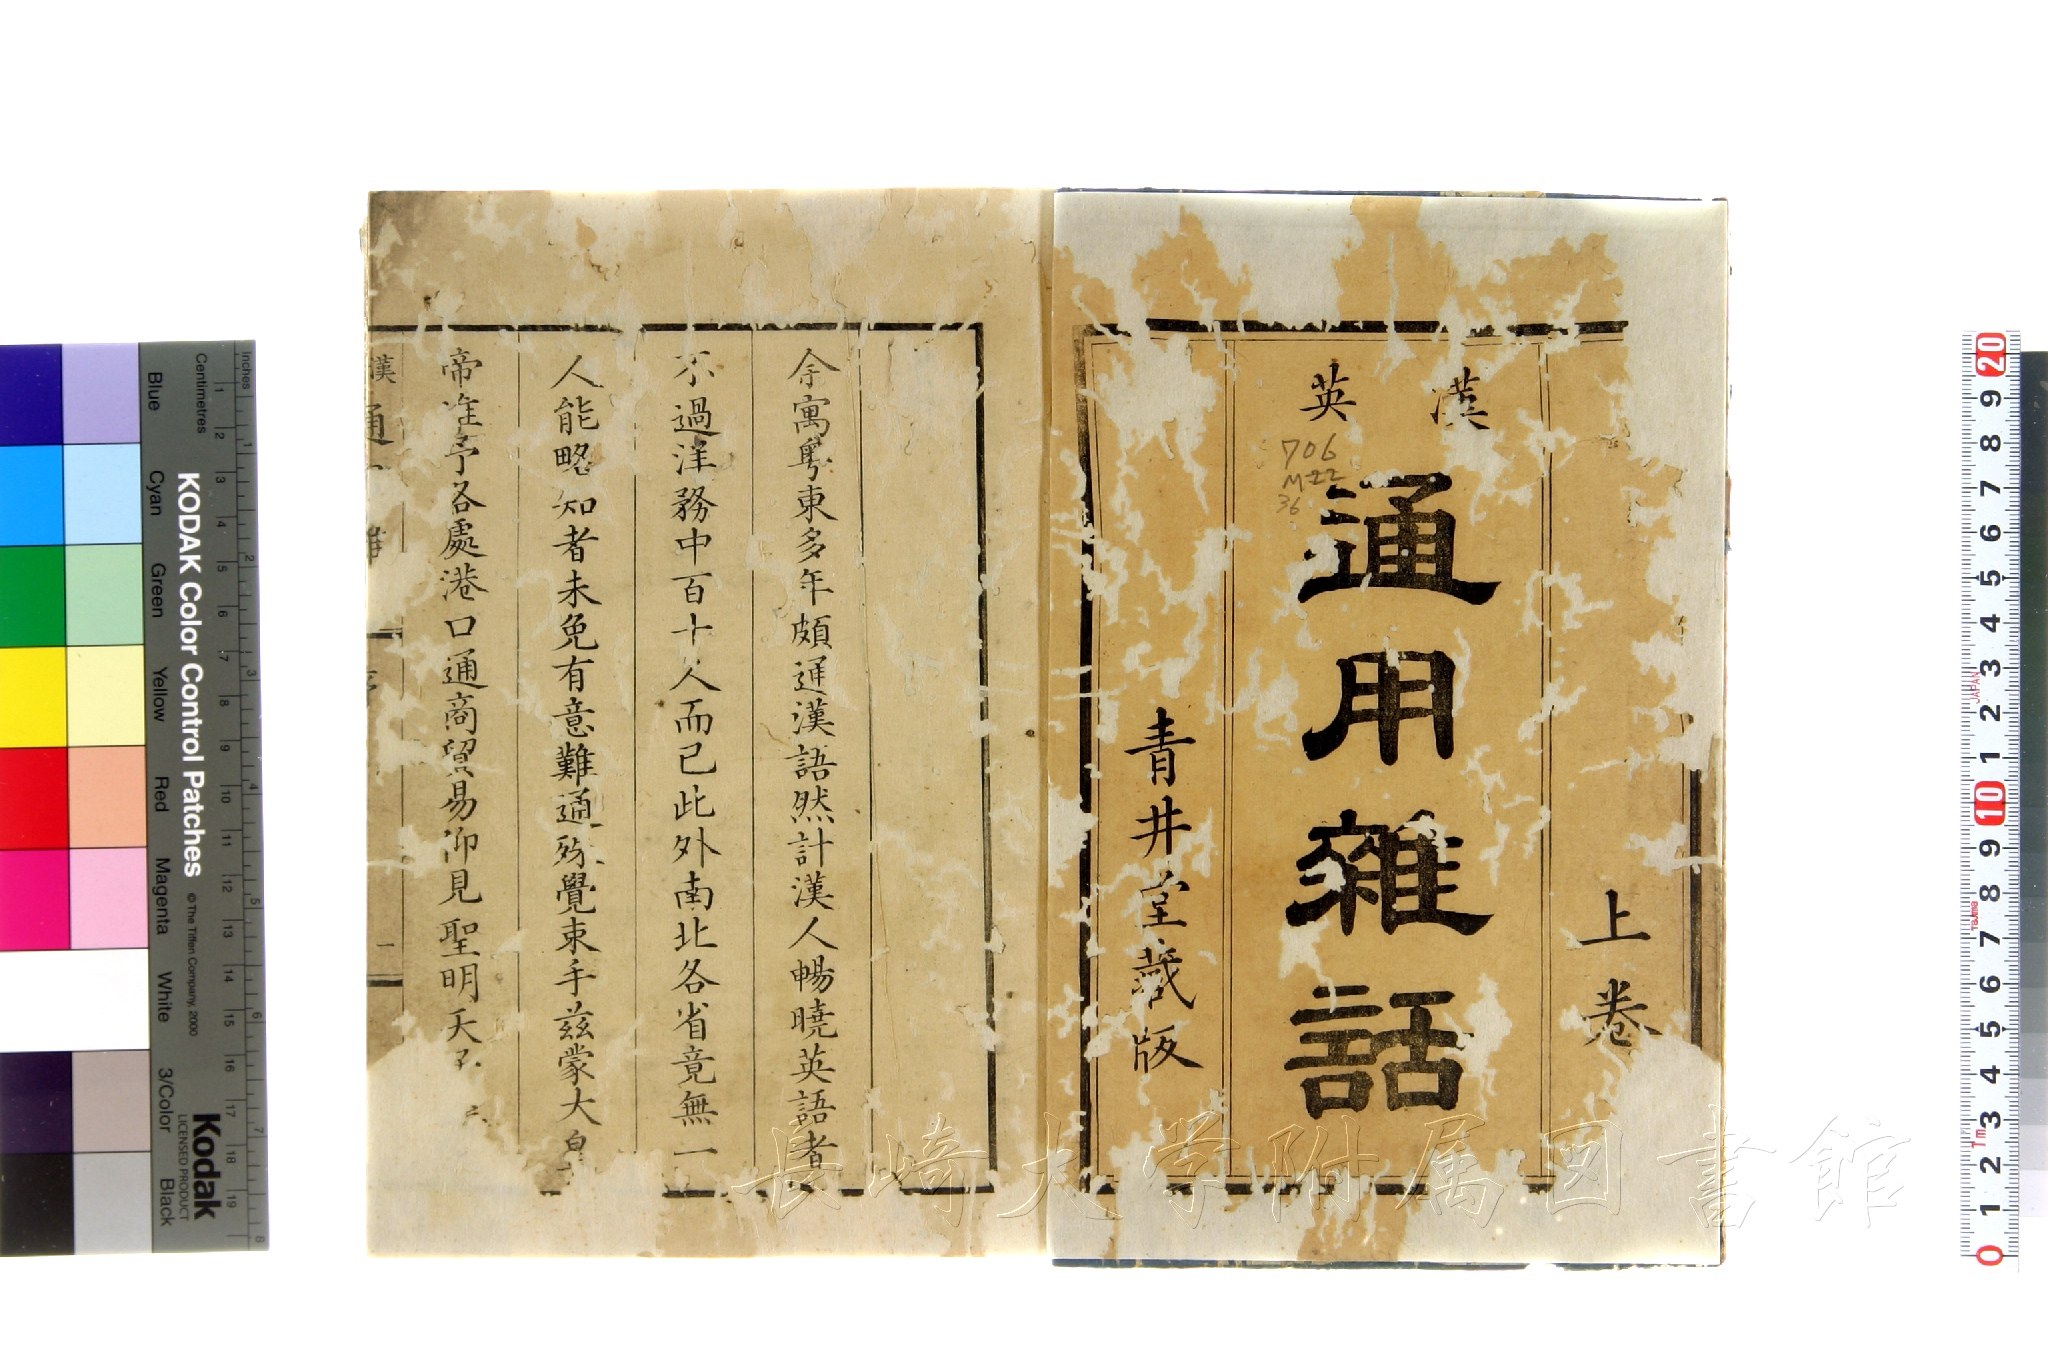 上卷
漢英
通用雜話
706
M-22
36
青井堂藏版
余寓粤東多年頗通漢語然計漢人暢曉英語者
不過洋務中百十人而已此外南北各省竟無一
人能略知者未免有意難通殊覺束手兹蒙大
帝准予各處港口通商貿易仰見聖明天
漢 通
一
長崎大学附属図書館
inches
Centimetres
KODAK Color Control Patches
© The Tiffen Company, 2000
Kodak
LICENSED PRODUCT
Blue
Cyan
Green
Yellow
Red
Magenta
White
3/Color
Black
1 2 3 4 5 6 7 8 9 10 11 12 13 14 15 16 17 18 19
1 2 3 4 5 6 7 8
20 9 8 7 6 5 4 3 2 1 10 9 8 7 6 5 4 3 2 1 0
JAPAN
1m